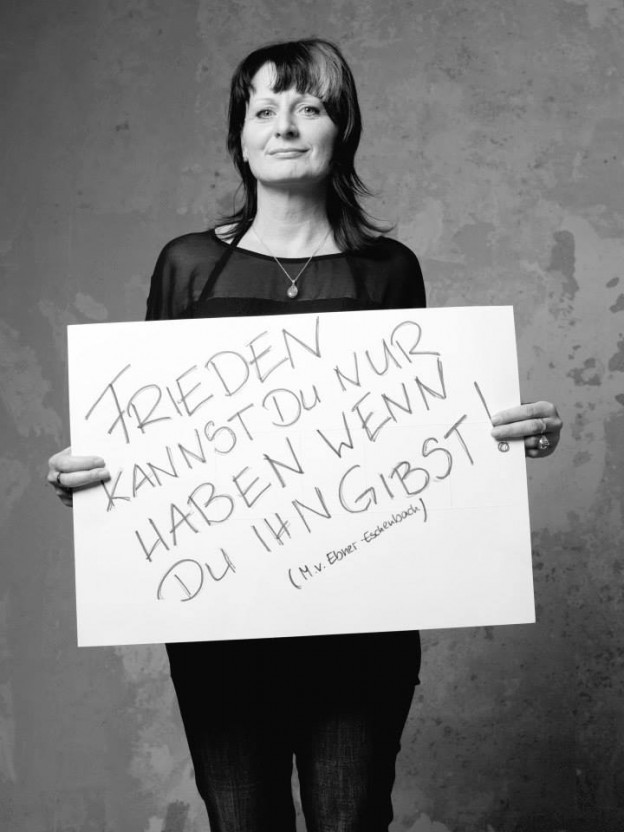 FRIEDEN
KANNST DU NUR
HABEN WENN
DU IHN GIBST!
(M. v. Ebner-Eschenbach)